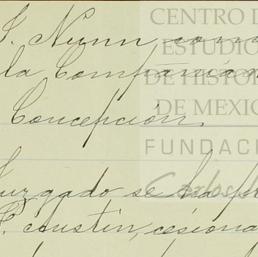 J. Nunn, como
la Compañía
Concepción.
Juzgado se ha
P. Austin, cesiona
CENTRO D
ESTUDIO
DE HISTOR
DE MEXIC
FUNDACI
Carlos